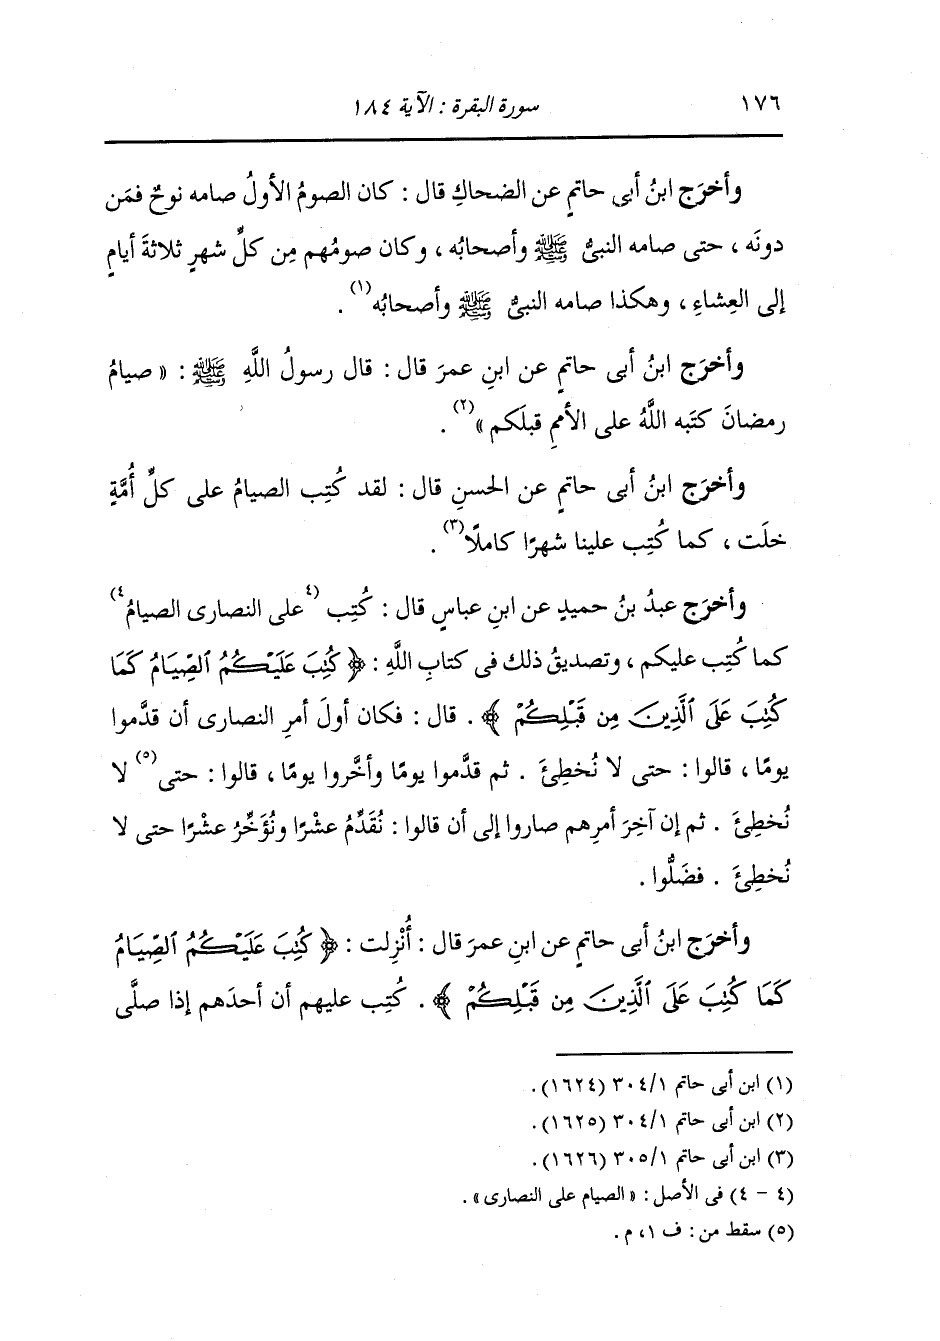 ١٧٦ سورة البقرة : الآية ١٨٤
وأخرَج ابنُ أبى حاتمٍ عن الضحاكِ قال : كان الصومُ الأولُ صامه نوحٌ فمَن
دونَه ، حتى صامه النبىُّ ﷺ وأصحابُه ، وكان صومُهم مِن كلِّ شهرٍ ثلاثةَ أيامٍ
إلى العِشاءِ ، وهكذا صامه النبىُّ ﷺ وأصحابُه(١) .
وأخرَج ابنُ أبى حاتمٍ عن ابنِ عمرَ قال : قال رسولُ اللَّهِ ﷺ : « صيامُ
رمضانَ كتَبه اللَّهُ على الأممِ قبلَكم »(٢) .
وأخرَج ابنُ أبى حاتمٍ عن الحسنِ قال : لقد كُتِب الصيامُ على كلِّ أُمَّةٍ
خلَت ، كما كُتِب علينا شهرًا كاملًا(٣) .
وأخرَج عبدُ بنُ حميدٍ عن ابنِ عباسٍ قال : كُتِب (٤على النصارى الصيامُ٤)
كما كُتِب عليكم ، وتصديقُ ذلك فى كتابِ اللَّهِ : ﴿ كُتِبَ عَلَيْكُمُ ٱلصِّيَامُ كَمَا
كُتِبَ عَلَى ٱلَّذِينَ مِن قَبْلِكُمْ ﴾ . قال : فكان أولَ أمرِ النصارى أن قدَّموا
يومًا ، قالوا : حتى لا نُخطِئَ . ثم قدَّموا يومًا وأخَّروا يومًا ، قالوا : حتى(٥) لا
نُخطِئَ . ثم إن آخِرَ أمرِهم صاروا إلى أن قالوا : نُقَدِّمُ عشْرًا ونُؤَخِّرُ عشْرًا حتى لا
نُخطِئَ . فضَلُّوا .
وأخرَج ابنُ أبى حاتمٍ عن ابنِ عمرَ قال : أُنْزِلت : ﴿ كُتِبَ عَلَيْكُمُ ٱلصِّيَامُ
كَمَا كُتِبَ عَلَى ٱلَّذِينَ مِن قَبْلِكُمْ ﴾ . كُتِب عليهم أن أحدَهم إذا صلَّى
(١) ابن أبى حاتم ٣٠٤/١ (١٦٢٤).
(٢) ابن أبى حاتم ٣٠٤/١ (١٦٢٥).
(٣) ابن أبى حاتم ٣٠٥/١ (١٦٢٦).
(٤ - ٤) فى الأصل : « الصيام على النصارى » .
(٥) سقط من : ف ١، م .